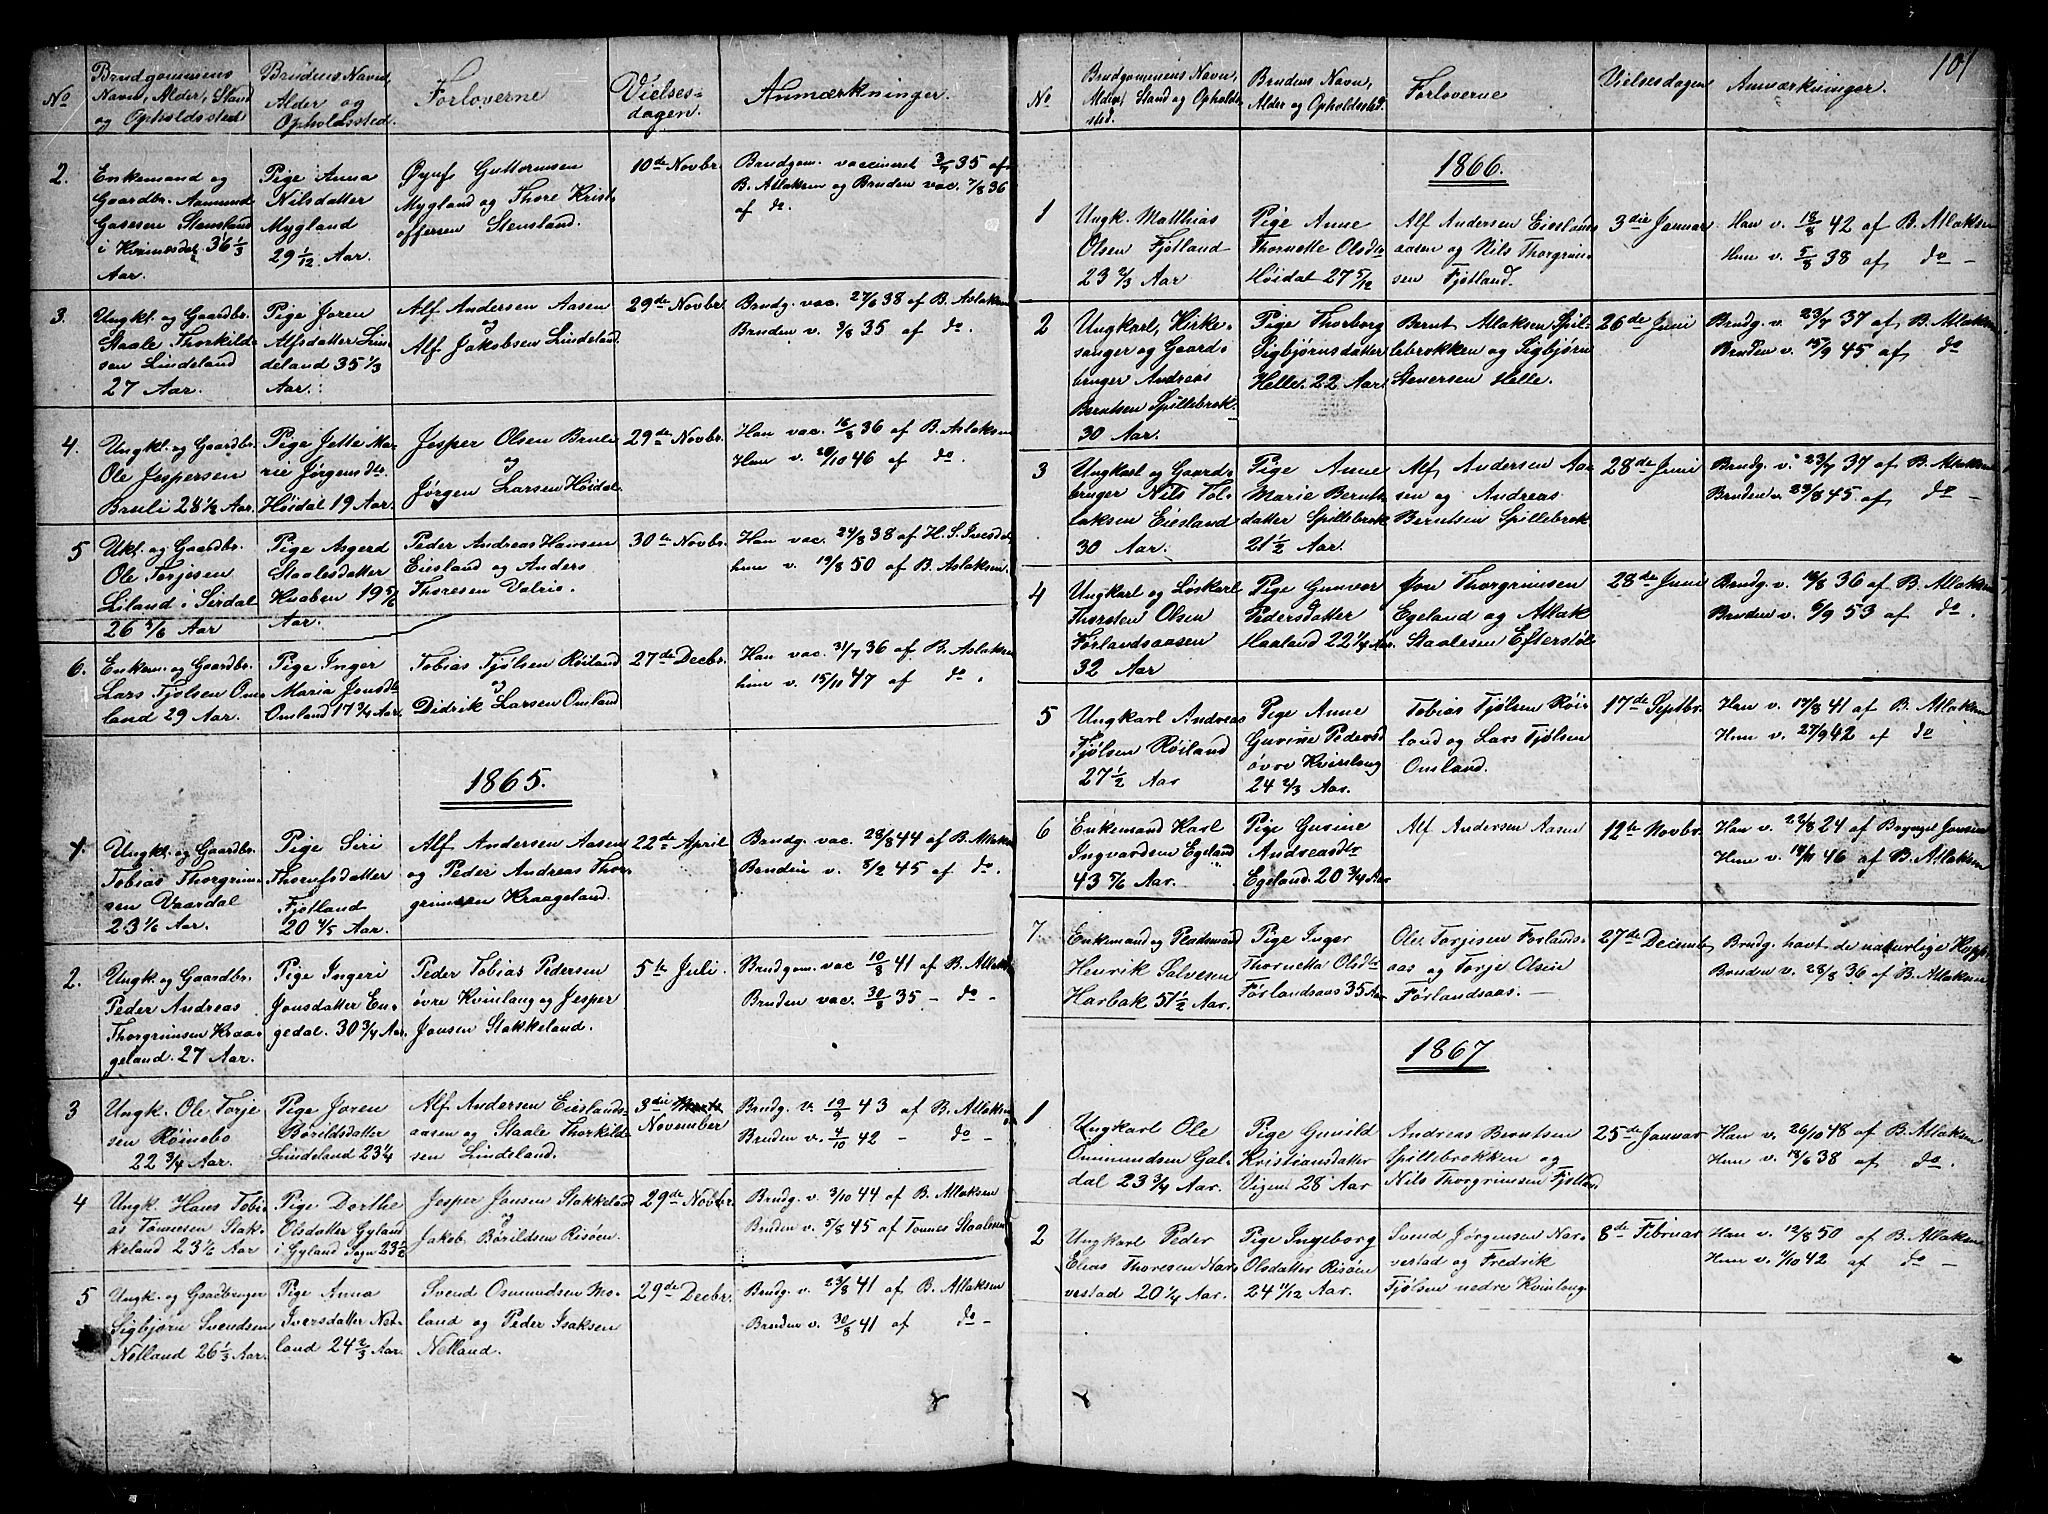 No
Brudgommens
Navn, Alder, Stand
og Opholdssted
Brudens Navn,
Alder og
Opholdssted.
Forloverne
Vielses-
dagen.
Anmærkninger.
2.
Enkemand og
Gaardbr. Aamund
Gasesen Stensland
i Kvinesdal 36 1/3
Aar.
Pige Anna
Nilsdatter
Mygland
29 1/12 Aar.
Øyuf Guttormsen
Mygland og Thore Krist-
offersen Stensland.
10de Novbr.
Brudgom. vaccineret 3/7 35 af
B. Atlaksen og Bruden vac. 7/8 36
af do.
3.
Ungkl. og Gaardbr.
Staale Thorkild-
sen Lindeland
27 Aar.
Pige Joren
Alfsdatter Lin-
deland 35 1/3
Aar.
Alf Andersen Aasen
og
Alf Jakobsen Lindeland
29de Novbr
Brudg. vac. 27/6 38 af B. Aslaksen
Bruden v. 3/8 35 af do.
4.
Ungkl. og Gaardbr.
Ole Jespersen
Bruli 28 1/2 Aar.
Pige Jette Ma-
rie Jørgensdtr.
Høidal 19 Aar.
Jesper Olsen Bruli
og
Jørgen Larsen Høidal.
29de Novbr.
Han vac. 16/8 36 af B. Aslaksen
Hun v. 20/10 46 af do.
5
Ukl. og Gaardbr.
Ole Torjesen
Liland i Sirdal
26 5/6 Aar
Pige Asgerd
Staalesdatter
Knaben 19 5/6
Aar.
Peder Andreas Hansen
Eiesland og Anders
Thoresen Valrio.
30te Novbr.
Han vac. 24/8 38 af H. S. Ivesdal
hun v. 19/8 50 af B. Aslaksen.
6.
Enkem. og Gaardbr.
Lars Tjølsen Om-
land 29 Aar.
Pige Inger
Maria Jonsdtr
Omland 17 3/4 Aar.
Tobias Tjølsen Røiland
og
Didrik Larsen Omland
27de Decbr.
Han vac. 31/7 36 af B. Aslaksen
hun v. 15/10 47 af do.
1865.
1.
Ungkl. og Gaardbr.
Tobias Thorgrim-
sen Vaardal
23 1/6 Aar.
Pige Siri
Thorufsdatter
Fjotland
20 4/5 Aar.
Alf Andersen Aasen
og Peder Andreas Thor-
grimsen Kraageland.
22de April
Brudg. vac. 28/8 44 af B. Atlaksen
Bruden v. 8/2 45 af do.
2.
Ungk. og Gaardbr.
Peder Andreas
Thorgrimsen Kraa-
geland. 27 Aar.
Pige Ingeri
Jonsdatter En-
gedal. 30 3/4 Aar.
Peder Tobias Pedersen
øvre Kvinlaug og Jesper
Jonsen Stakkeland.
5te Juli.
Brudgom. vac 10/8 41 af B. Atlaks
Bruden vac. 30/8 35 - do -
3
Ungk. Ole Torje
sen Røinebo
22 3/4 Aar.
Pige Joren
Børildsdatter
Lindeland 23 1/4
Alf Andersen Eieslands-
aasen og Staale Thorkild-
sen Lindeland.
3die
November
Brudg. v. 19/9 43 af B. Atlaksen
Bruden v. 4/10 42 - do -
4
Ungk. Hans Tobi-
as Tønnesen Stak-
keland 23 1/2 Aar
Pige Dorthe
Olsdatter Gyland
i Gyland Sogn 23 1/2
Jesper Jonsen Stakkeland
og
Jakob Børildsen Risøen.
29de Novbr
Brudg. v. 3/10 44 af B. Atlaksen
Bruden v. 5/8 45 af Tønnes Staalesen
5
Ungk. og Gaardbruger
Sigbjørn Svendsen
Netland 26 1/3 Aar.
Pige Anna
Iversdatter Net-
land 24 2/3 Aar.
Svend Osmundsen Mo-
land og Peder Isaksen
Netland.
29de Decbr.
Brudg. v. 23/8 41 af B. Atlaksen
Bruden v. 30/8 41 af do -
101
No
Brudgommens Navn,
Alder, Stand og Opholds-
sted.
Brudens Navn,
Alder og Opholdssted.
Forloverne
Vielsesdagen
Anmærkninger.
1866.
1
Ungk. Matthias
Olsen Fjotland
23 2/3 Aar
Pige Anne
Thornette Olsdtr
Høidal 27 5/12
Alf Andersen Eieslands-
aasen og Nils Thorgrim-
sen Fjotland.
3die Januar
Han v. 18/8 42 af B. Atlaksen
Hun v. 5/8 38 af do -
2
Ungkarl, Kirke-
sanger og Gaard-
bruger Andreas
Berntsen Spillebrok.
30 Aar.
Pige Thorborg
Sigbjørnsdatter
Helle. 22 Aar.
Bernt Atlaksen Spil-
lebrokken og Sigbjørn
Stenersen Helle.
26de Juni
Brudg. v. 23/7 37 af B. Atlaksen
Bruden v. 15/9 45 af do
3
Ungkarl og Gaard-
bruger Nils Tol-
laksen Eiesland
30 Aar.
Pige Anne
Marie Bernts-
datter Spillebrok
21 1/2 Aar.
Alf Andersen Aa-
sen og Andreas
Berntsen Spillebrok
28de Juni
Brudg. v. 23/7 37 af B. Atlaksen
Bruden v. 23/8 45 af do -
4
Ungkarl og Løskarl
Thorsten Olsen
Førlandsaasen
32 Aar
Pige Gunvor
Pedersdatter
Haaland 22 1/4 Aar.
Øvn Thorgrimsen
Egeland og Atlak
Staalesen Efterstøl
28de Juni
Brudg. v. 18/8 36 af B. Atlaksen
Bruden v. 6/9 53 af do.
5
Ungkarl Andreas
Tjølsen Røiland
27 1/2 Aar
Pige Anne
Gurine Pedersd
øvre Kvinlaug
24 2/3 Aar.
Tobias Tjølsen Røi-
land og Lars Tjølsen
Omland.
17de Septbr.
Han v. 17/8 41 af B. Atlaksen
Hun v. 27/9 42 af do
6
Enkemand Karl
Ingvardsen Egeland
43 5/6 Aar.
Pige Gurine
Andreasdtr
Egeland. 20 3/4 Aar
Alf Andersen Aasen
12te Novbr.
Han v. 22/8 24 af Brynjel Jonsen
Hun v. 14/11 46 af B. Atlaksen
7.
Enkemand og Pladsmand
Henrik Salvesen
Harbak 51 1/2 Aar.
Pige Inger
Thornetta Olsdtr
Førlandsaas 35 Aar
Ole Torjesen Forlands-
aas og Torje Olsen
Førlandsaas. -
27de Decemb.
Brudg. havt de naturlige Kopper
Bruden v. 28/8 36 af B. Atlaksen
1867
1
Ungkarl Ole
Ommundsen Gal-
dal 23 3/4 Aar.
Pige Gunild
Kristiansdatter
Vigen 28 Aar
Andreas Berntsen
Spillebrokken og
Nils Thorgrimsen Fjotland
25de Januar
Han v. 26/10 48 af B. Atlaksen
Hun v. 18/6 38 af do.
2
Ungkarl Peder
Elias Thoresen Nar-
vestad 20 1/4 Aar.
Pige Ingeborg
Olsdatter Risøen
24 11/12 Aar.
Svend Jørgensen Nar-
vestad og Fredrik
Tjølsen nedre Kvinlaug.
8de Februar
Han v. 12/8 50 af B. Atlaksen
Hun v. 1/10 42 af do -